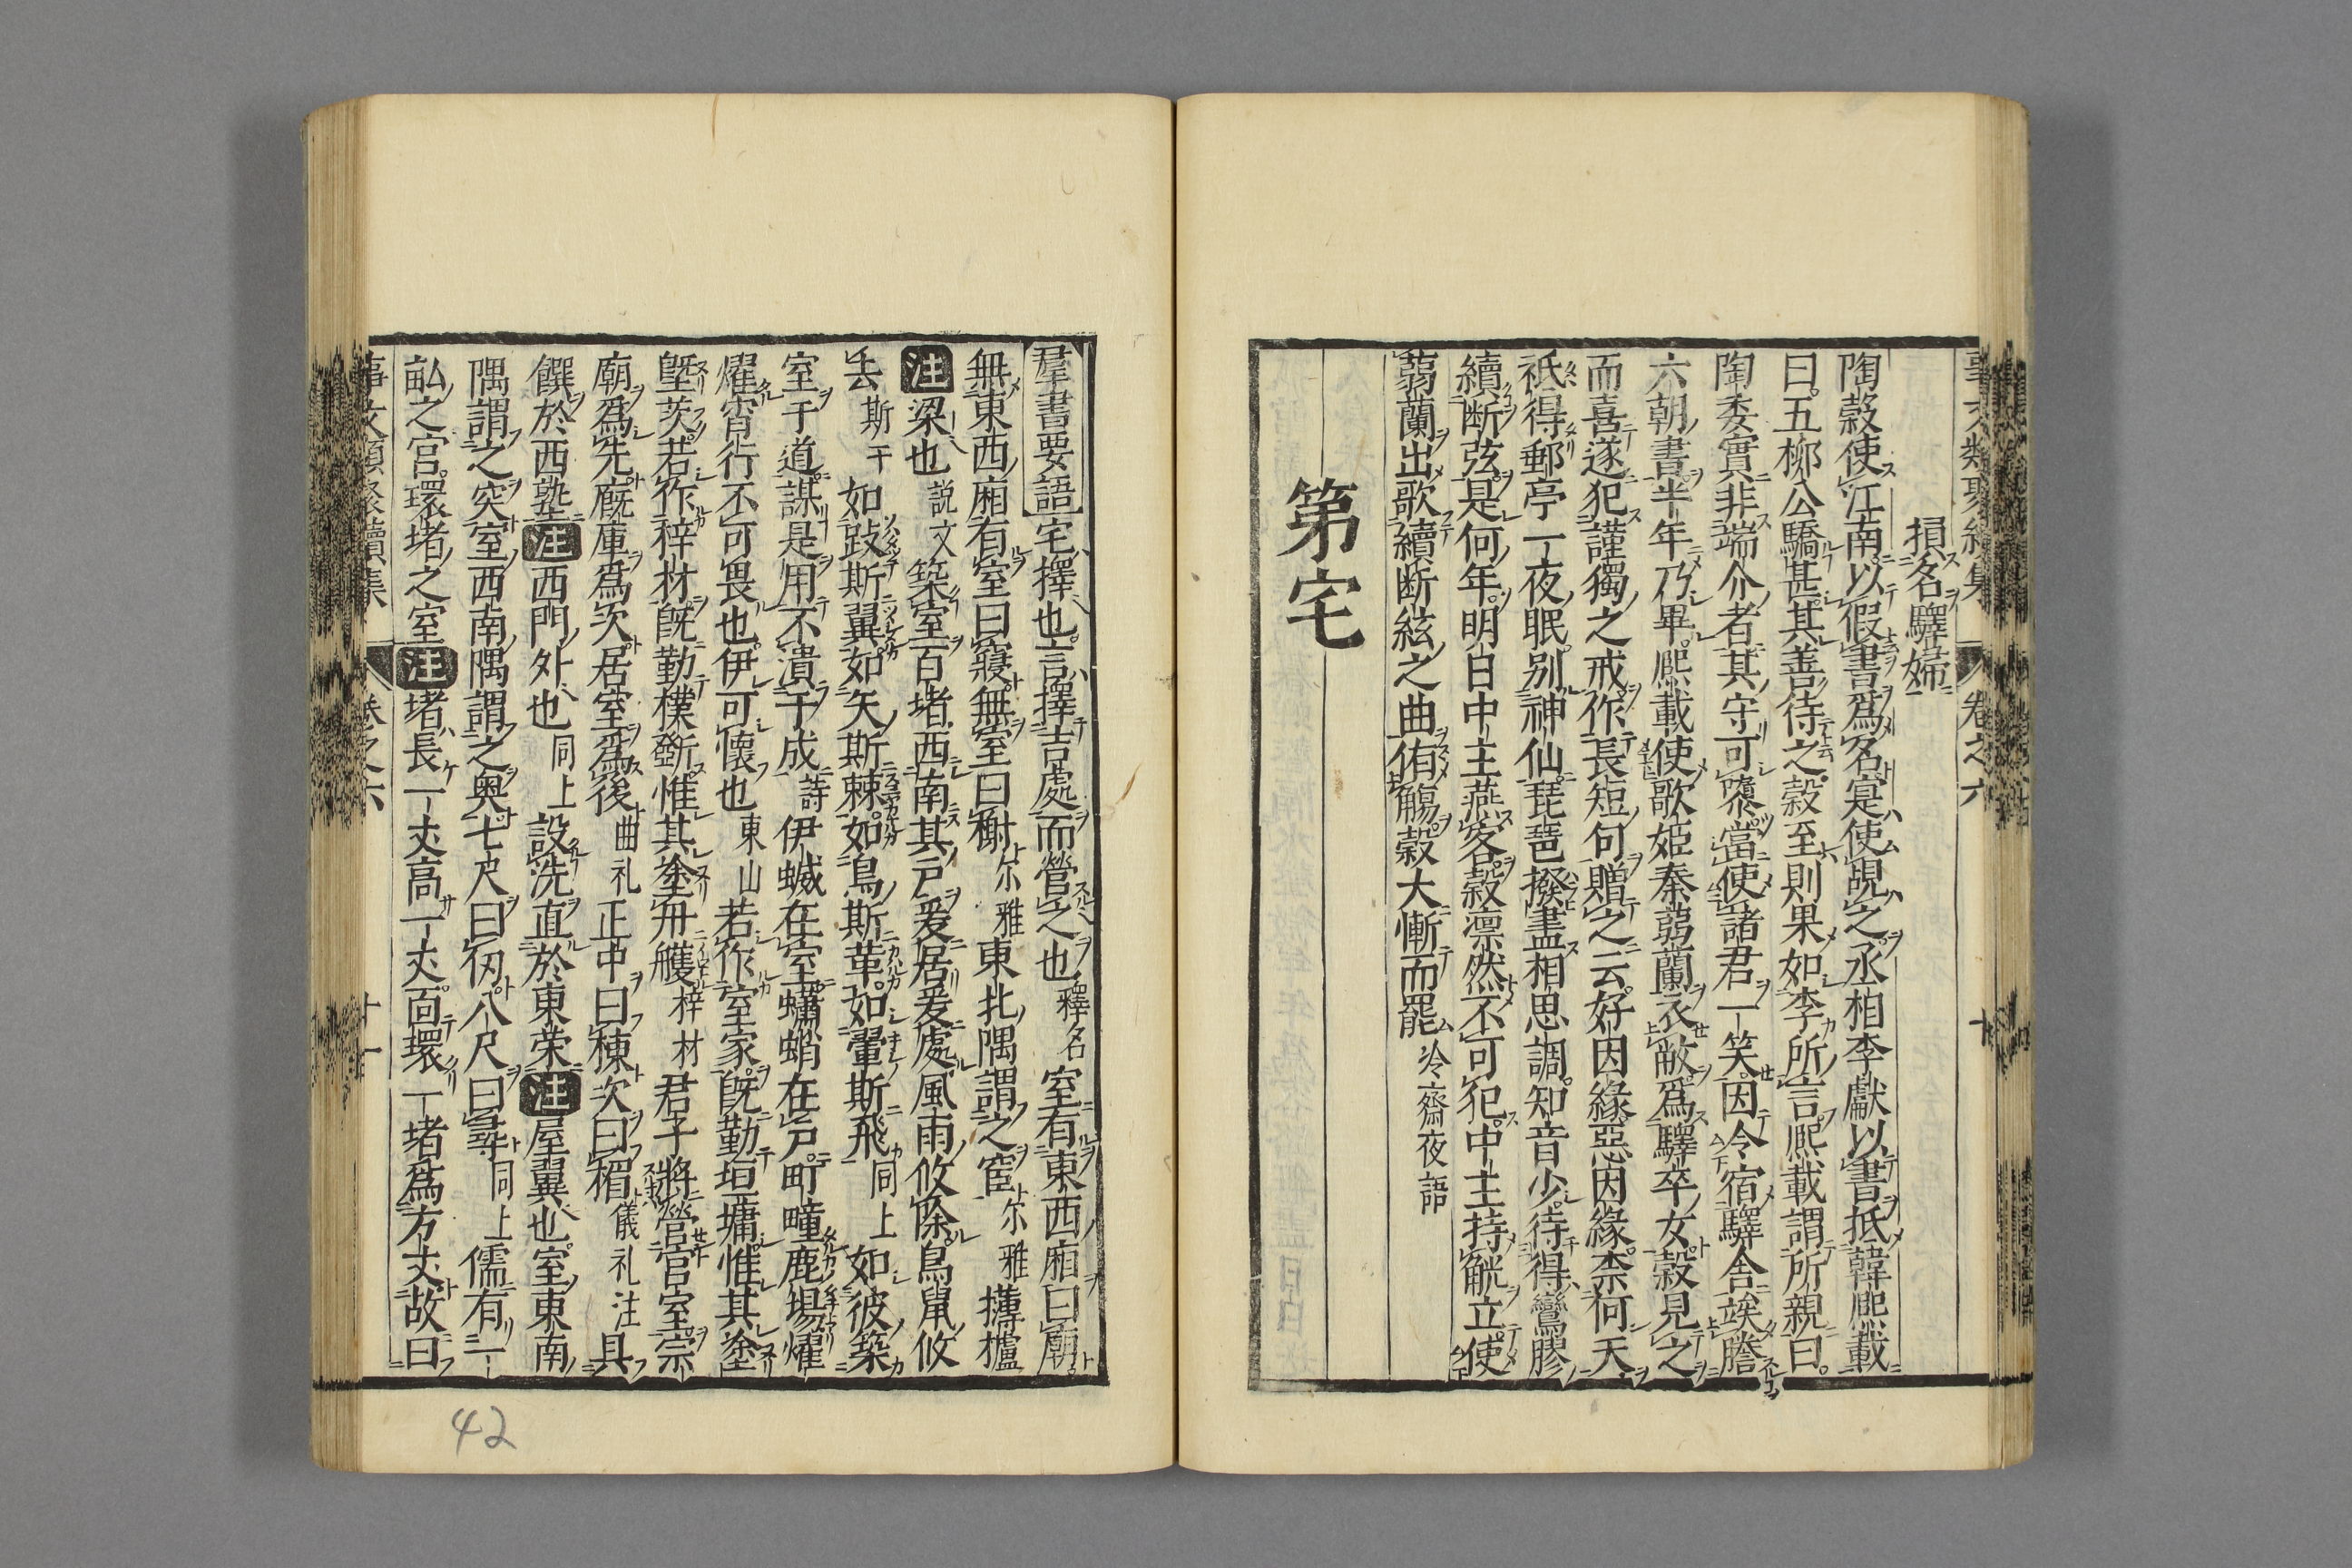 損名驛婦
陶穀使江南以假書爲名寔使覘之丞相李獻以書抵韓熙載
曰五柳公驕甚其善待之穀至則果如李所言熙載謂所親曰
陶委實非端介者其守可隳當使諸君一笑因令宿驛舍竢謄
六朝書半年乃畢熙載使歌姬秦蒻蘭衣敝爲驛卒女穀見之
而喜遂犯謹獨之戒作長短句贈之云好因緣惡因緣柰何天
衹得郵亭一夜眠别神仙琵琶撥盡相思調知音少待得鸞膠
續断弦是何年明日中主燕客穀凛然不可犯中主持觥立使
蒻蘭出歌續断絃之曲侑觴穀大慚而罷冷齋夜語
第宅
卷之六
羣書要語宅擇也言擇吉處而營之也釋名室有東西廂曰廟
無東西廂有室曰寢無室曰榭尓雅東北隅謂之宧尓雅欂櫨
注梁也説文築室百堵西南其戸爰居爰處風雨攸除鳥䑕攸
去斯干如跂斯翼如矢斯棘如鳥斯革如翬斯飛同上如彼築
室于道謀是用不潰于成詩伊蝛在室蠨蛸在戸町疃鹿場熠
燿宵行不可畏也伊可懷也東山若作室家旣勤垣墉惟其塗
墍茨若作梓材旣勤樸斲惟其塗丹雘梓材君子將營宮室宗
廟爲先廐庫爲次居室爲後曲礼正中曰棟次曰楣儀礼注具
饌於西塾注西門外也同上設洗直於東荣注屋翼也室東南
隅謂之穾室西南隅謂之奥七尺曰仭八尺曰尋同上儒有一
畝之宮環堵之室注堵長一丈高一丈靣環一堵爲方丈故曰
事文類聚續集 卷之六 十一